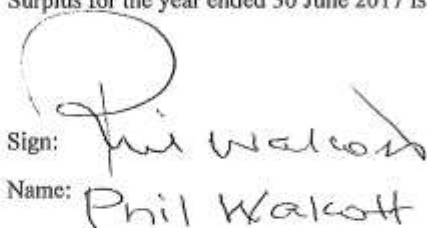 Surplus for the year ended 30 June 2017 is
Sign: Phil Walcott
Name: Phil Walcott